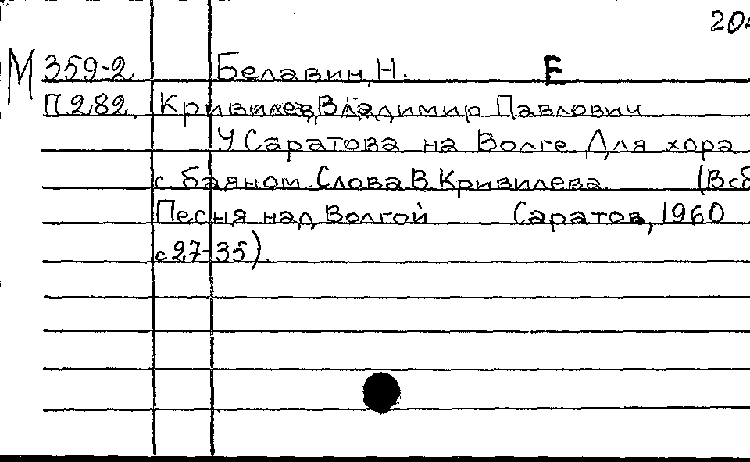 20
М 359-2 Белавин, Н. Е
П 282 Кривилев, Владимир Павлович
У Саратова на Волге Для хора
с баяном Слова В Кривилева (В сб
Песня над Волгой Саратов, 1960
с 27-35).